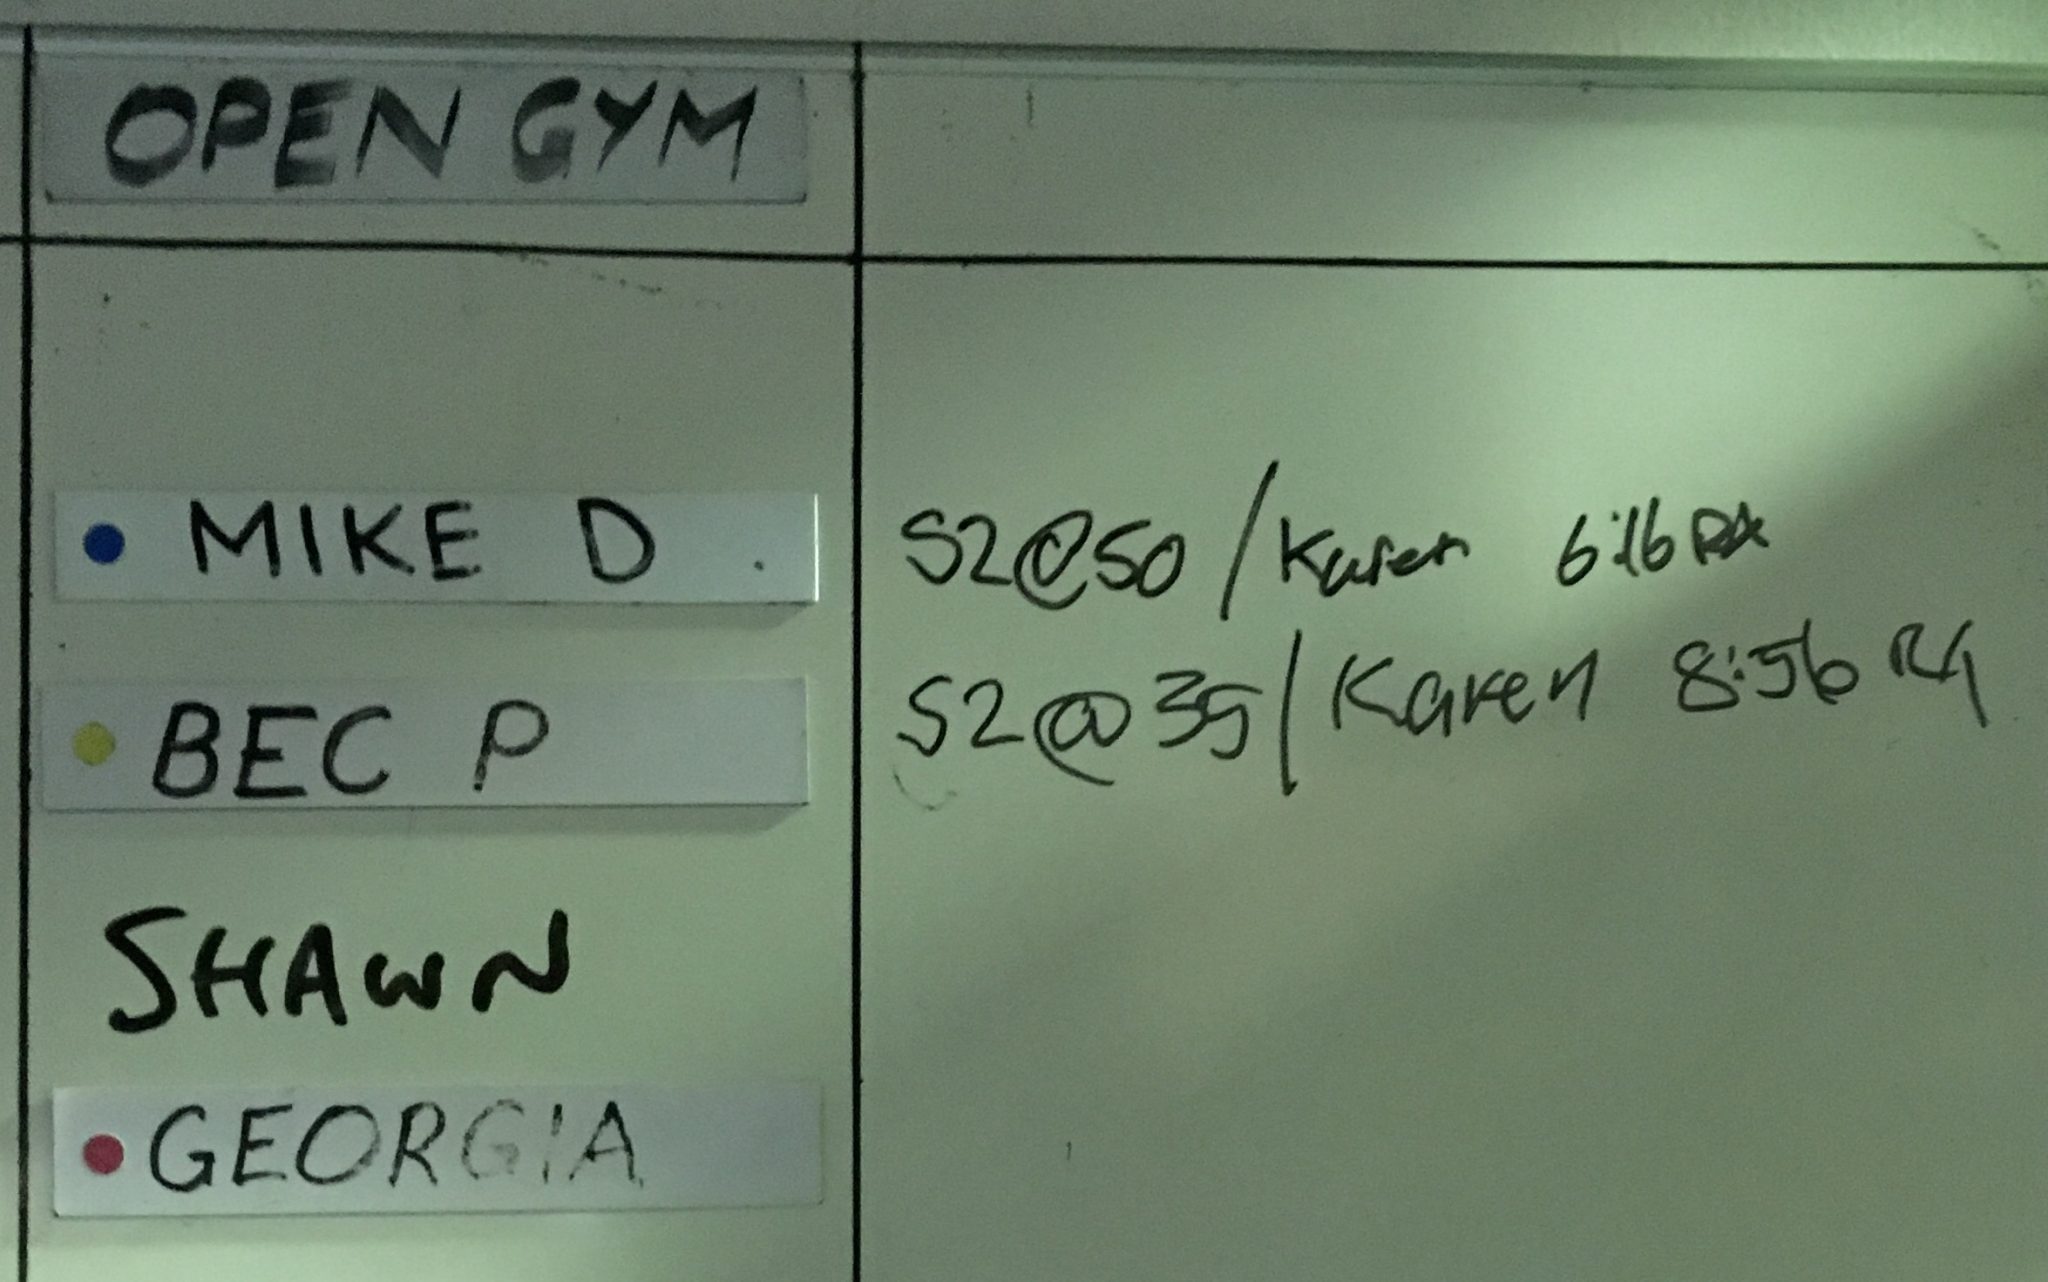 OPEN GYM
MIKE D. S2@50 / Karen 6:16 RX
BEC P S2@35 / Karen 8:56
SHAWN
GEORGIA